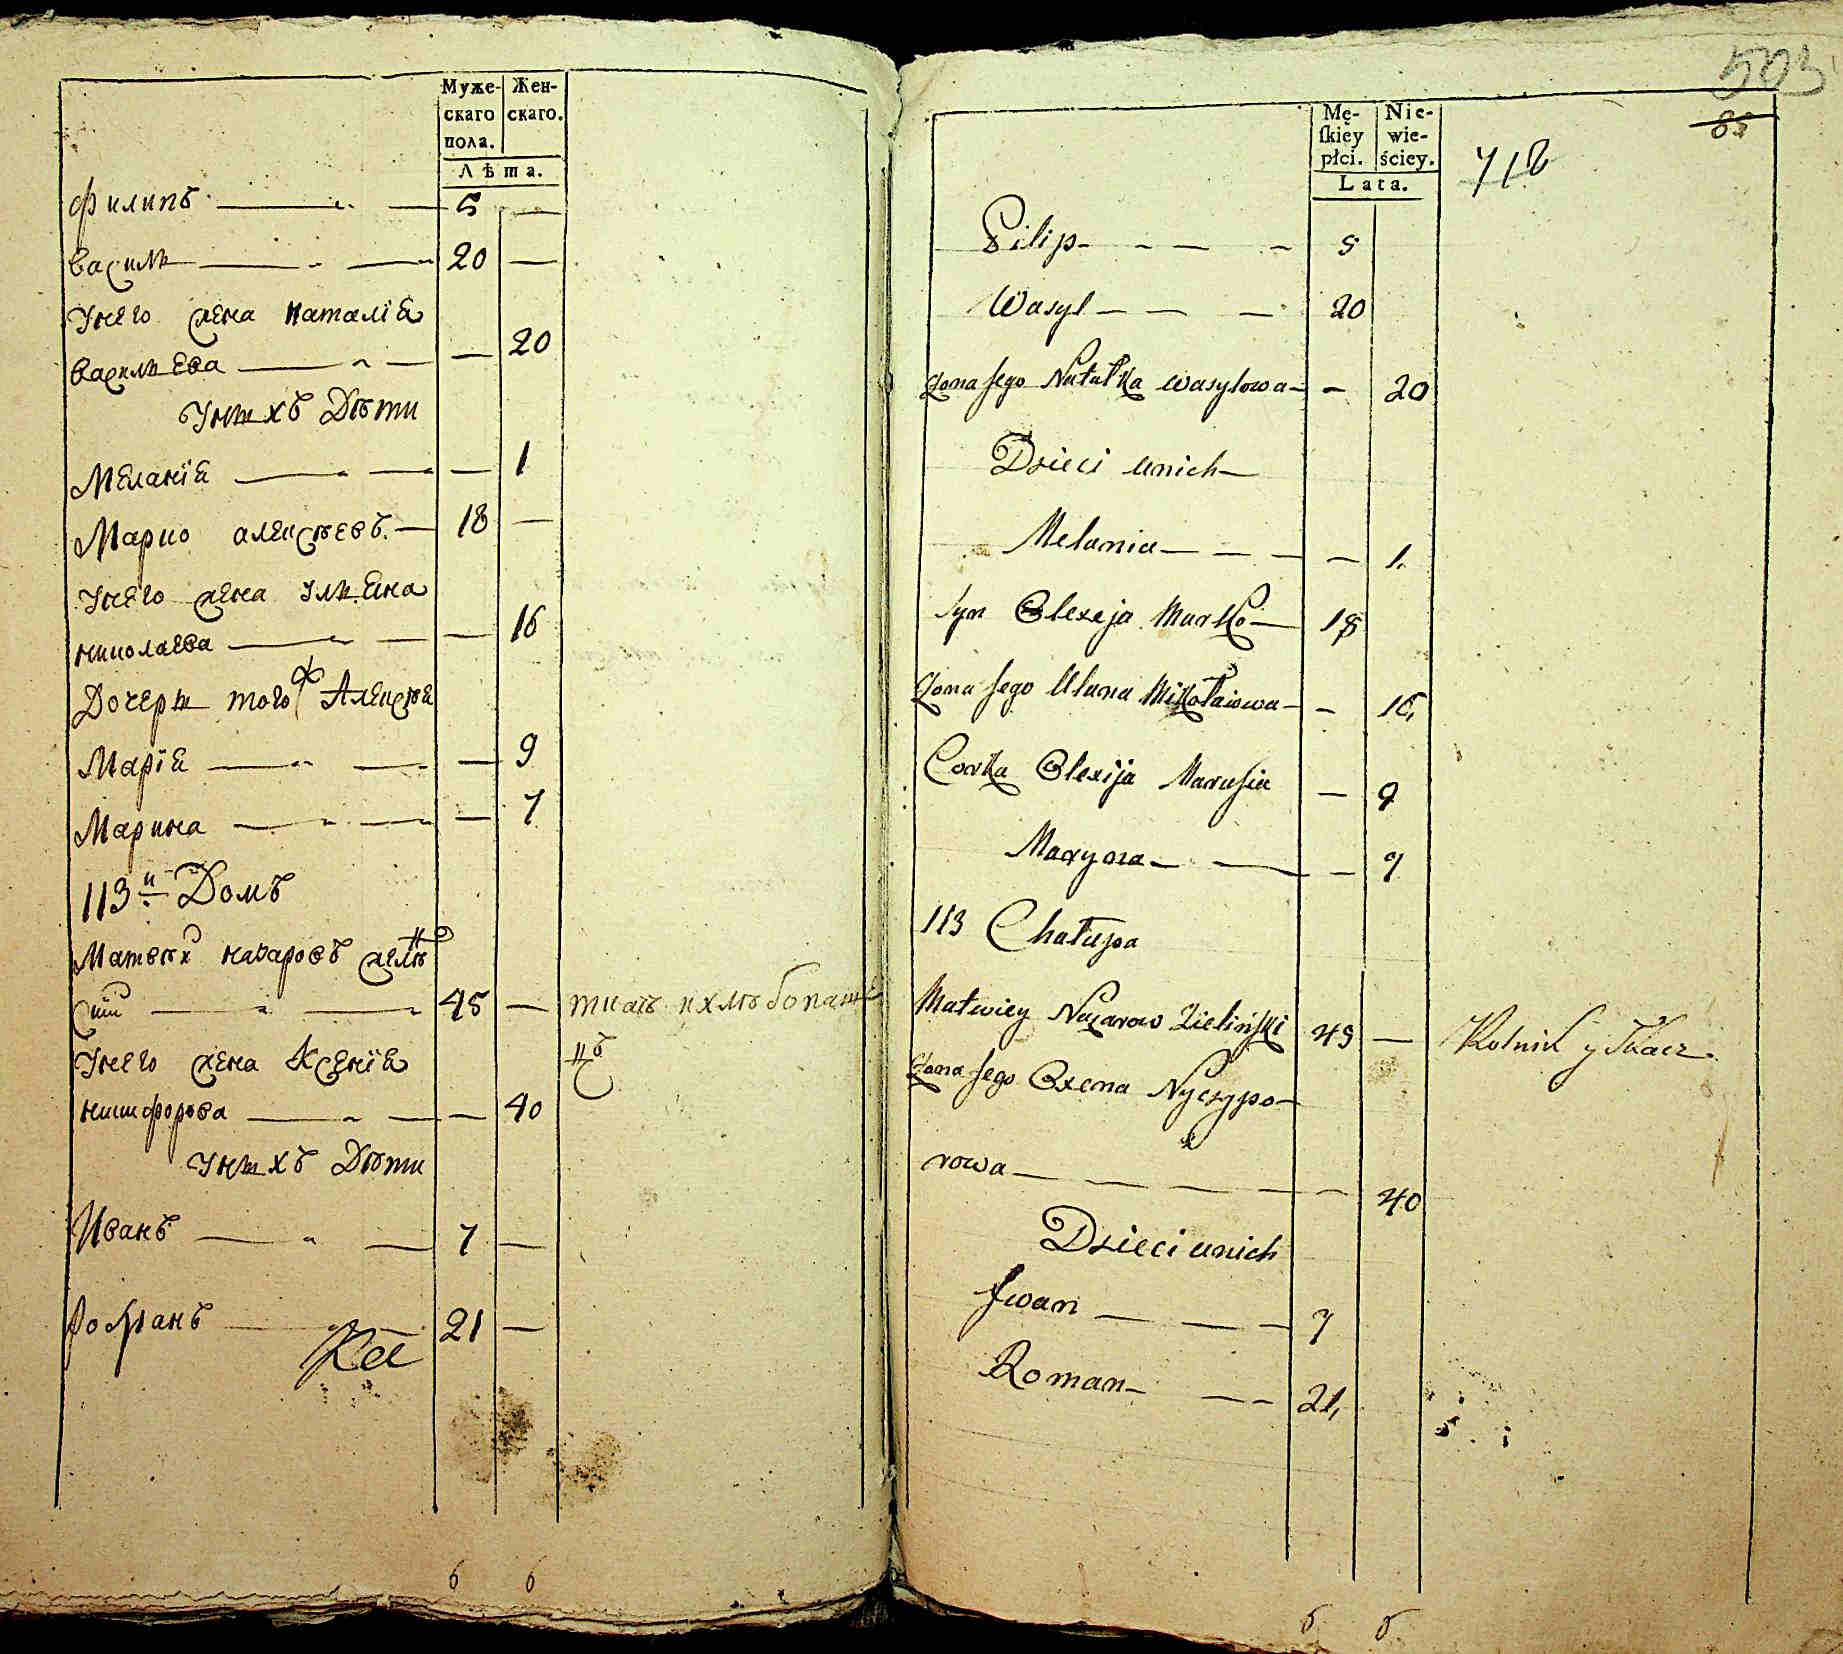 Муже-
скаго
пола.
Жен-
скаго.
Лѣта.
Филипъ — „ — 5 —
Василь — „ — 20 —
Унего жена Наталіа
Васильева — „ — — 20
Унихъ Дѣти
Меланіа — „ — — 1
Марко алексѣевъ — 18 —
Унего жена Ульяна
николаева — „ — — 16
Дочери того ж Алексѣя
Маріа — „ — — 9
Марина — „ — — 7
113й Домъ
Матвѣй назаровъ желѣн
скій — „ — 45 — ткачъ и хлѣбопаше
цъ
Унего жена Ксеніа
никифорова — „ — — 40
Унихъ Дѣти
Иванъ — „ — 7 —
Романъ — „ — 21 —
6 6
503
85
Mę-
ſkiey
płci.
Nie-
wie-
ściey.
Lata.
718
Filip - - — - 5
Wasyl - — — 20
Żona Jego Natałka Wasylowa - - 20
Dzieci unich —
Melania — — — — 1.
Syn Olexeja Marko — 18
Żona Jego Ulana Mikołaiowa - - 16,
Corka Olexija Marusia — 9
Maryna — — — 7
113 Chałupa
Matwiey Nazarow Zieliński 45 — Rolnik y Tkacz.
Żona Jego Oxena Nyczypo-
rowa — — — — — 40
Dzieci unich
Iwan — — — — 7
Roman - — - 21,
6 6